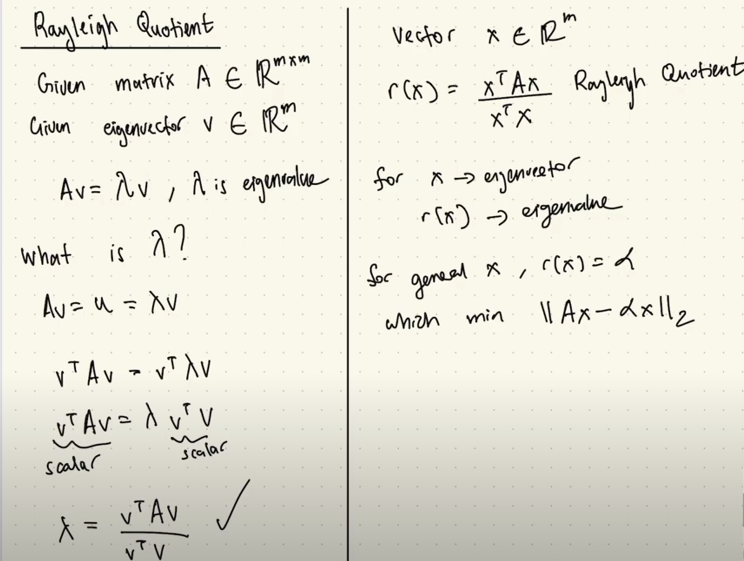 Rayleigh Quotient
Given matrix A ∈ ℝ^{m×m}
Given eigenvector v ∈ ℝ^m
Av = λv , λ is eigenvalue
What is λ?
Av = u = λv
v^T Av = v^T λv
v^T Av = λ v^T v
scalar scalar
λ = v^T Av / v^T v ✓
Vector x ∈ ℝ^m
r(x) = x^T Ax / x^T x Rayleigh Quotient
for x → eigenvector
r(x) → eigenvalue
for general x , r(x) = α
which min ‖Ax − αx‖_2